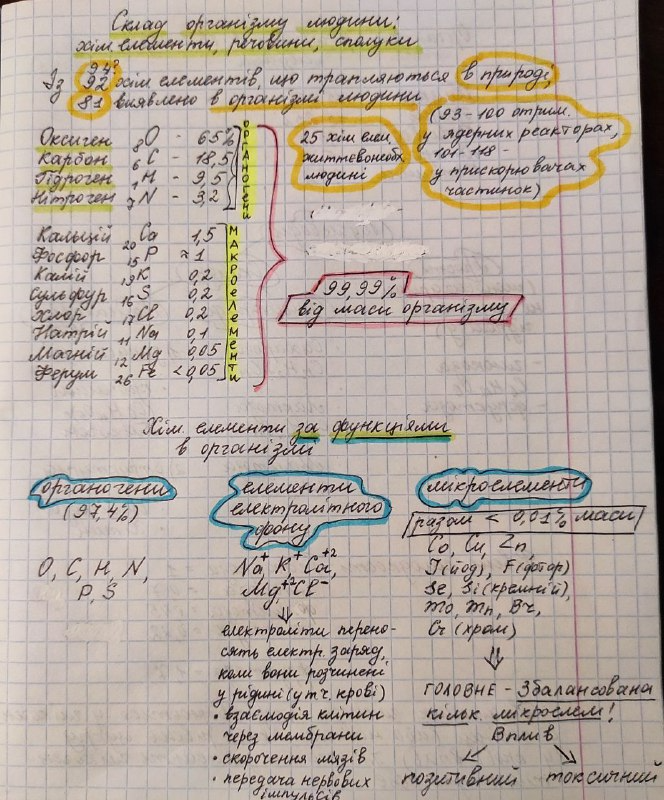 Склад організму людини:
хім елементи, речовини, сполуки
94?
Із 92 хім елементів, що трапляються в природі,
81 виявлено в організмі людини
(93-100 отрим.
у ядерних реакторах,
101-118 -
у прискорювачах
частинок)
25 хім елем.
життєвонеобх.
людині
Оксиген ₈O - 65%
Карбон ₆C - 18,5
Гідроген ₁H - 9,5
Нітроген ₇N - 3,2
ОРГАНОГЕНИ
Кальцій ₂₀Ca 1,5
Фосфор ₁₅P ≈1
Калій ₁₉K 0,2
Сульфур ₁₆S 0,2
Хлор ₁₇Cl 0,2
Натрій ₁₁Na 0,1
Магній ₁₂Mg 0,05
Ферум ₂₆Fe <0,05
МАКРОЕЛЕМЕНТИ
99,99%
від маси організму
Хім. елементи за функціями
в організмі
органогени
(97,4%)
O, C, H, N,
P, S
елементи
електролітного
фону
Na⁺ K⁺ Ca⁺²,
Mg⁺² Cl⁻
електроліти перено-
сять електр. заряд,
коли вони розчинені
у рідині (у т.ч. крові)
• взаємодія клітин
через мембрани
• скорочення м'язів
• передача нервових
імпульсів
мікроелементи
разом < 0,01% маси
Co, Cu, Zn,
I (йод), F (фтор)
Se, Si (кремній),
Mo, Mn, Br,
Cr (хром)
ГОЛОВНЕ - Збалансована
кільк. мікроелем!
Вплив
позитивний токсичний